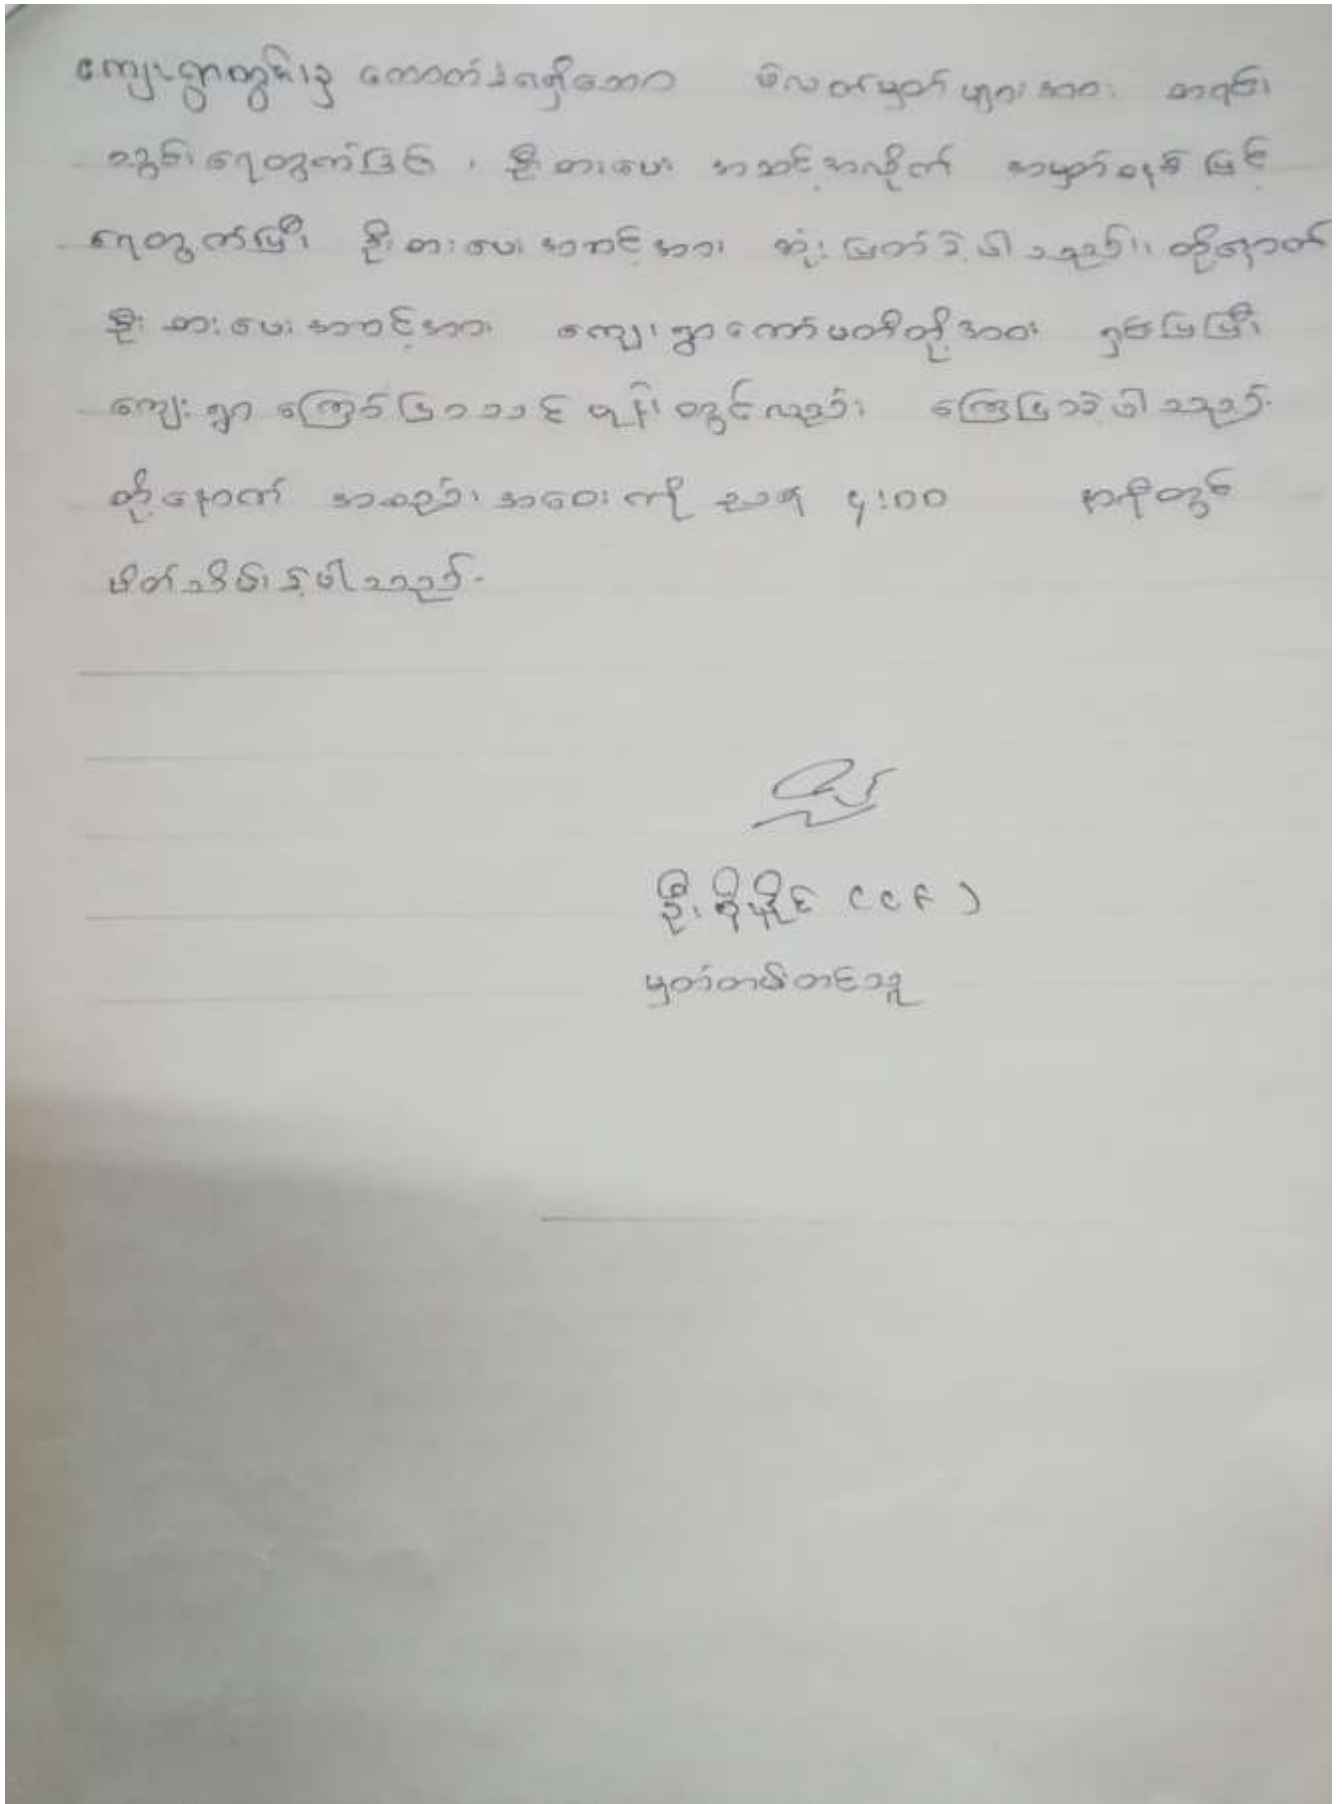 ကျေးရွာတွင်း၌ ကောက်ခံရရှိသော မဲလက်မှတ်များအား စာရင်း
သွင်းရေတွက်ခြင်း ၊ ဦးစားပေး အဆင့်အလိုက် အမှတ်စနစ်ဖြင့်
ရေတွက်ပြီး ဦးစားပေးအဆင့်အား ဆုံးဖြတ်ခဲ့ပါသည်။ ထို့နောက်
ဦးစားပေးအဆင့်အား ကျေးရွာကော်မတီတို့အား ရှင်းပြပြီး
ကျေးရွာ ကြော်ငြာသင်ပုန်းတွင်လည်း ကြေငြာခဲ့ပါသည်.
ထို့နောက် အစည်းအဝေးကို ညနေ ၄:၀၀ နာရီတွင်
ပိတ်သိမ်းခဲ့ပါသည်.
ဦးစိုးမှိုင် (CCF)
မှတ်တမ်းတင်သူ